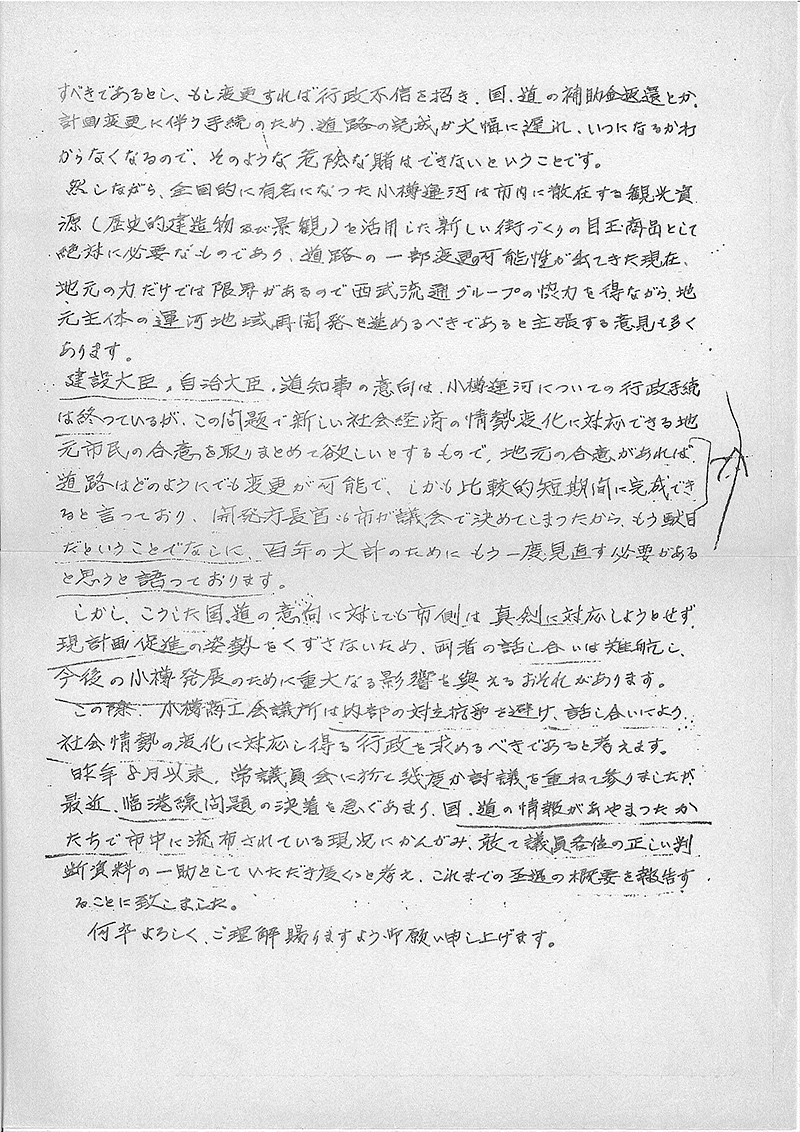 すべきであるとし、もし変更すれば行政不信を招き、国、道の補助金返還とか、
計画変更に伴う手続のため、道路の完成が大幅に遅れ、いつになるかわ
からなくなるので、そのような危険な賭はできないということです。
然しながら、全国的に有名になった小樽運河は市内に散在する観光資
源(歴史的建造物及び景観)を活用した新しい街づくりの目玉商品として
絶対に必要なものであり、道路の一部変更の可能性が出てきた現在、
地元の力だけでは限界があるので西武流通グループの協力を得ながら、地
元主体の運河地域再開発を進めるべきであると主張する意見も多く
あります。
建設大臣、自治大臣、道知事の意向は、小樽運河についての行政手続
は終っているが、この問題で新しい社会経済の情勢変化に対応できる地
元市民の合意を取りまとめて欲しいとするもので、地元の合意があれば、
道路はどのようにでも変更が可能で、しかも比較的短期間に完成でき
ると言っており、開発庁長官も市が議会で決めてしまったから、もう駄目
だということでなしに、百年の大計のためにもう一度見直す必要がある
と思うと語っております。
しかし、こうした国、道の意向に対しても市側は真剣に対応しようとせず、
現計画促進の姿勢をくずさないため、両者の話し合いは難航し、
今後の小樽発展のために重大なる影響を与えるおそれがあります。
この際、小樽商工会議所は内部の対立抗争を避け、話し合いにより、
社会情勢の変化に対応し得る行政を求めるべきであると考えます。
昨年8月以来、常議員会に於て幾度か討議を重ねて参りましたが、
最近、臨港線問題の決着を急ぐあまり、国、道の情報があやまったか
たちで市中に流布されている現況にかんがみ、敢て議員各位の正しい判
断資料の一助としていただき度くと考え、これまでの経過の概要を報告す
ることに致しました。
何卒よろしく、ご理解賜りますよう御願い申し上げます。